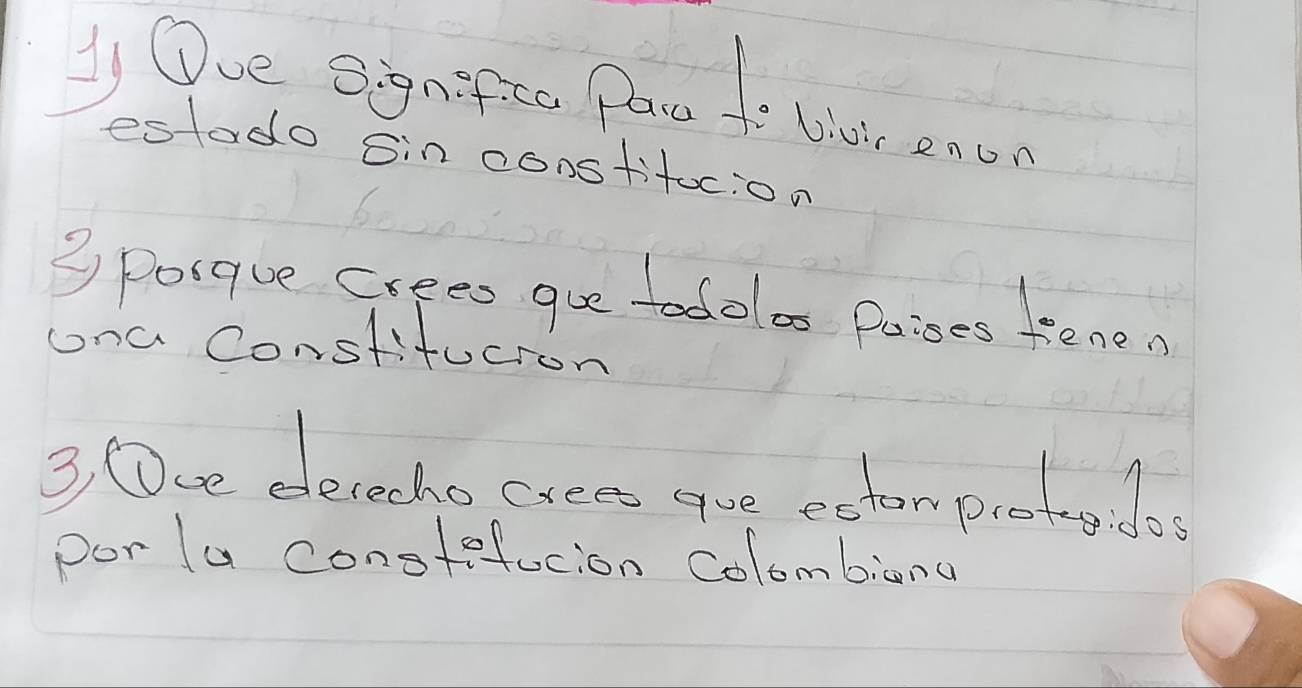 1) Que significa Para ti vivir en un
estado sin constitucion
2) porque crees que todolos Paises tienen
una Constitucion
3) Que derecho crees que estan protegidos
por la constitucion Colombiana